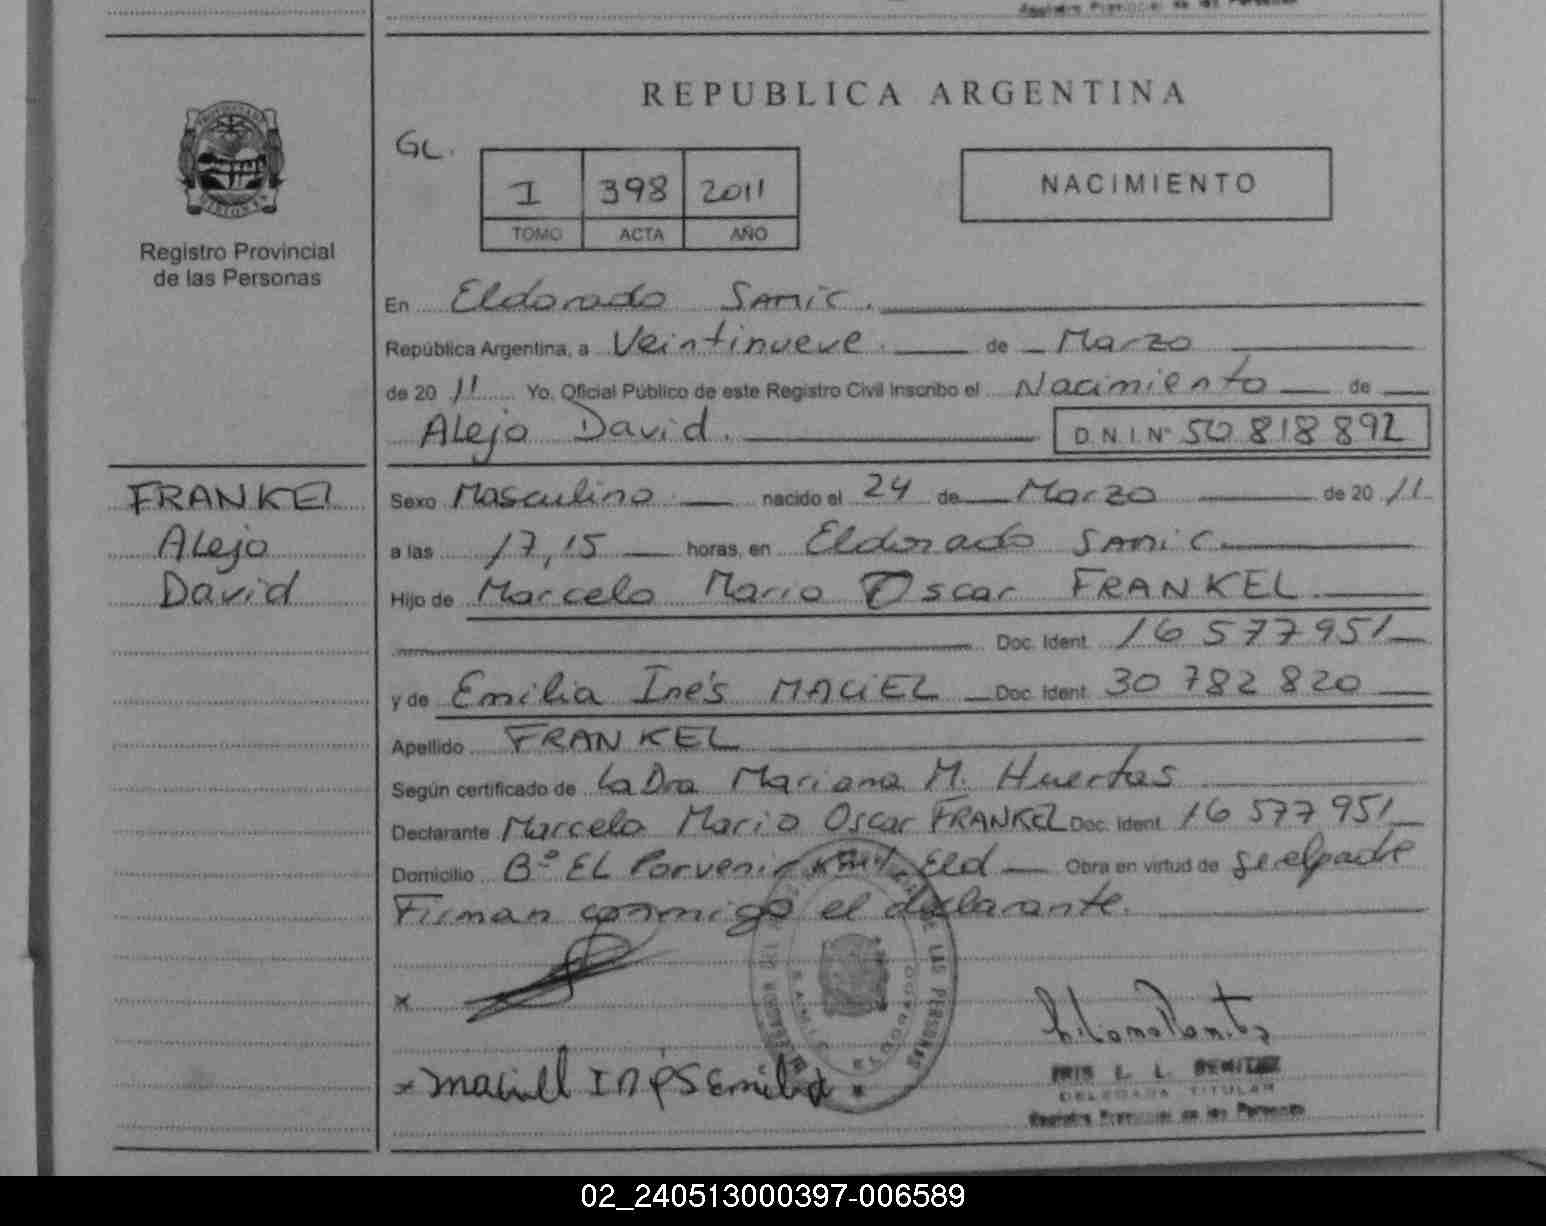 Registro Provincial de las Personas
REPUBLICA ARGENTINA
GL.
I 398 2011
TOMO ACTA AÑO
NACIMIENTO
Registro Provincial
de las Personas
En Eldorado SAMIC.
República Argentina, a Veintinueve de Marzo
de 20 11 Yo, Oficial Público de este Registro Civil Inscribo el Nacimiento de
Alejo David. D.N.I. Nº 50 818 892
FRANKEL
Alejo
David
Sexo Masculino nacido el 24 de Marzo de 20 11
a las 17,15 horas, en Eldorado SAMIC
Hijo de Marcelo Mario Oscar FRANKEL
Doc. Ident. 16 577 951
y de Emilia Inés MACIEL Doc. Ident. 30 782 820
Apellido FRANKEL
Según certificado de La Dra Mariana M. Huertas
Declarante Marcelo Mario Oscar FRANKEL Doc. Ident. 16 577 951
Domicilio Bº EL Porvenir Eld Obra en virtud de ser el padre
Firman conmigo el declarante.
x
x Maciel Inés Emilia
DE LAS PERSONAS
ELDORADO
L. L. BENITEZ
DELEGADA TITULAR
Registro Provincial de las Personas
02_240513000397-006589